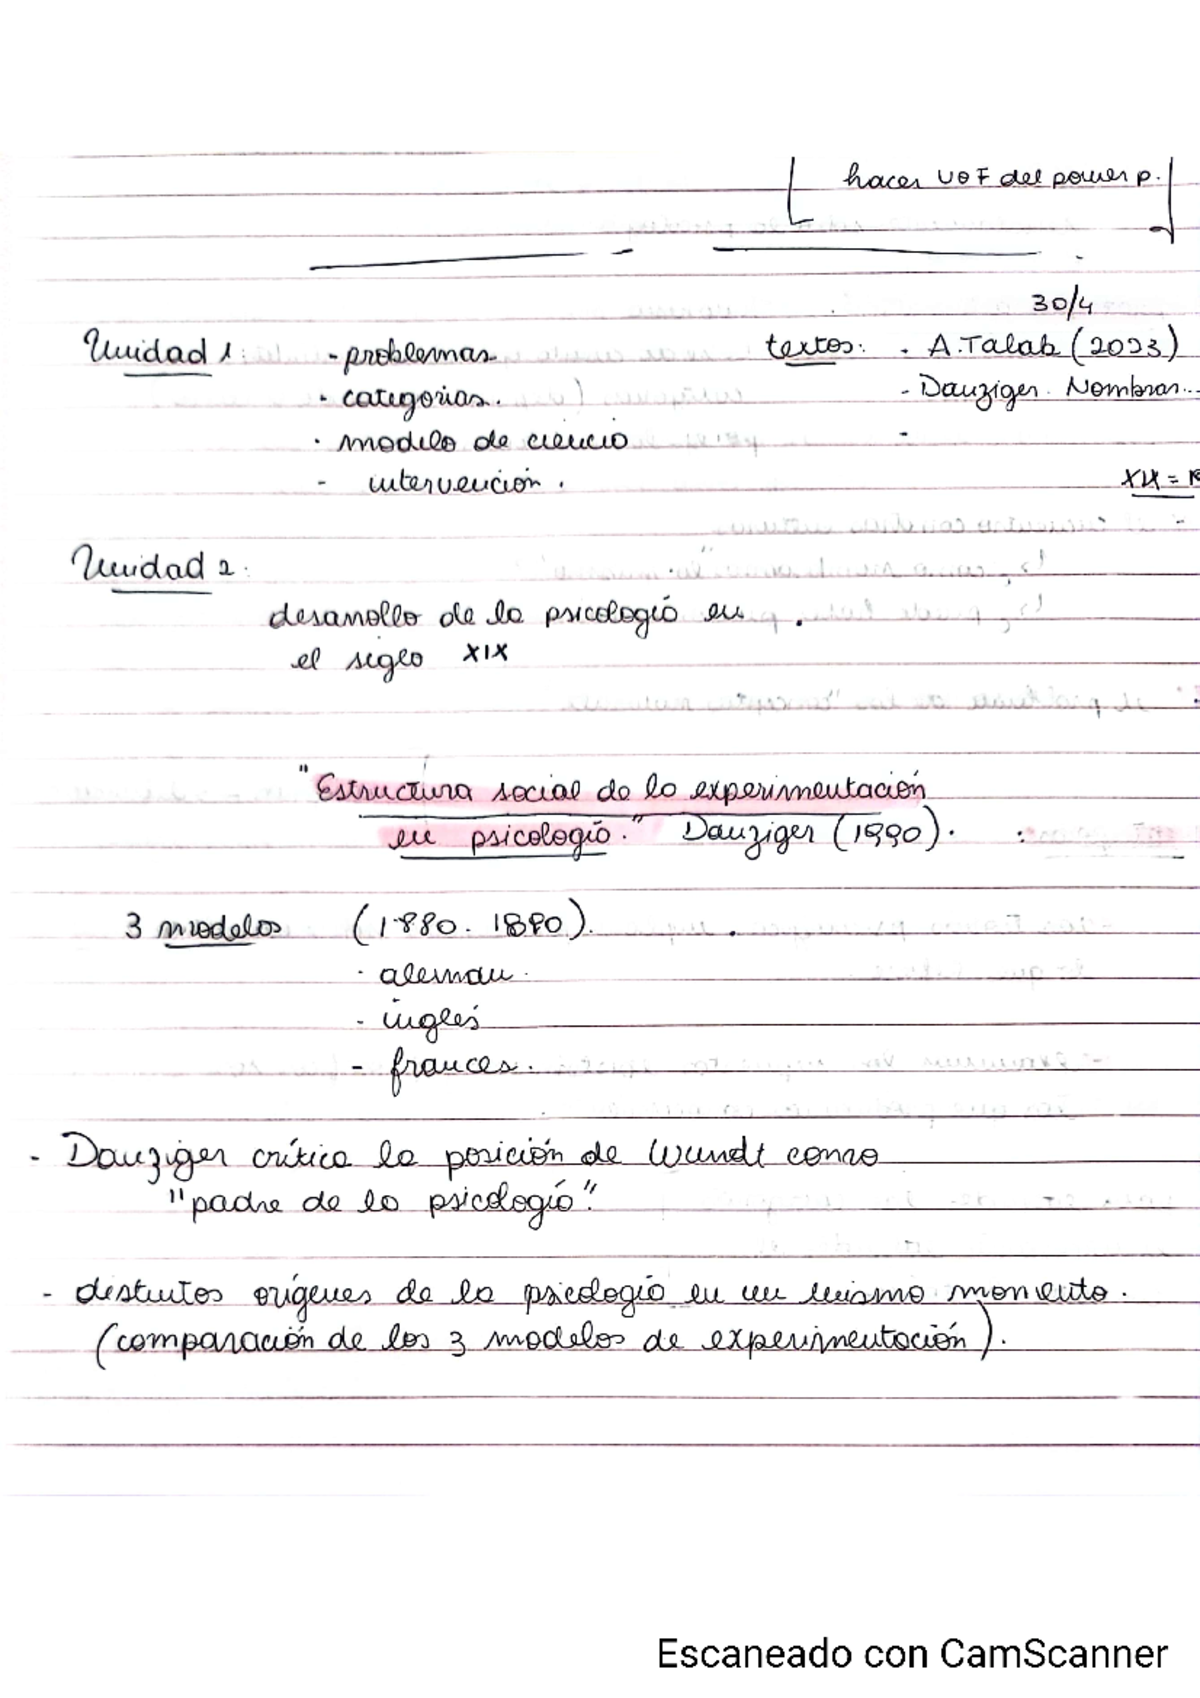 hacer V o F del power p.
30/4
Unidad 1: - problemas textos: . A. Talab (2023)
. categorias. - Danziger. Nombrar...
. modelo de ciencia -
- intervención. XIX =
Unidad 2:
desarrollo de la psicología en
el siglo XIX
"Estructura social de la experimentación
en psicología." Danziger (1990).
3 modelos (1880. 1890).
. aleman.
- inglés
- frances.
- Danziger crítica la posición de Wundt como
"padre de la psicología".
- distintos orígenes de la psicología en un mismo momento.
(comparación de los 3 modelos de experimentación).
Escaneado con CamScanner